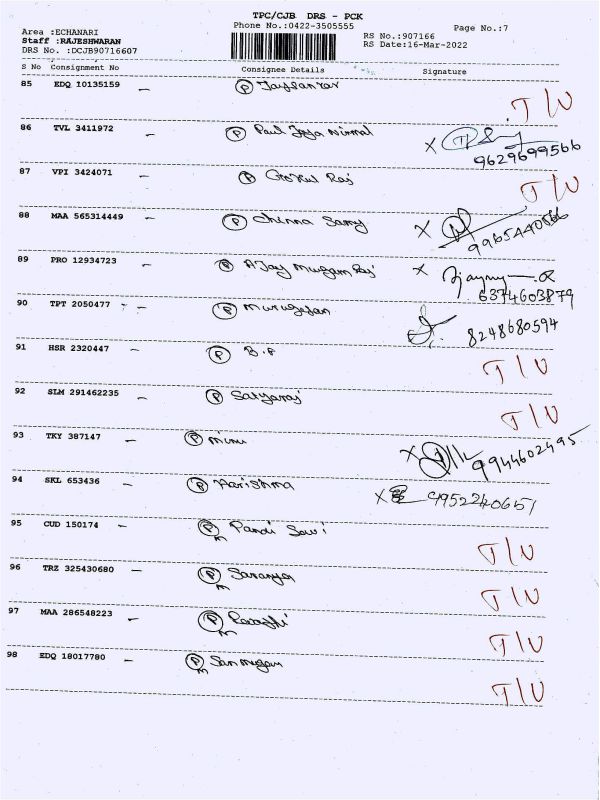 TPC/CJB DRS - PCK
Phone No.:0422-3505555
Page No.:7
Area :ECHANARI
Staff :RAJESHWARAN
DRS No. :DCJB90716607
RS No.:907166
RS Date:16-Mar-2022
S No Consignment No Consignee Details Signature
85 EDQ 10135159 – P Jaysankar T/U
86 TVL 3411972 – P Paul Nirmal X 9629699566
87 VPI 3424071 – P Gokul Raj T/U
88 MAA 565314449 – P Chinna Samy X 9965440566
89 PRO 12934723 – P AJay Mugam Raj X 6374603879
90 TPT 2050477 – P Murugesan 8248680594
91 HSR 2320447 – P B.P T/U
92 SLM 291462235 – P Satyaraj T/U
93 TKY 387147 – P minu X 9944602495
94 SKL 653436 – P Harishma X 9952240651
95 CUD 150174 – P m Pandi T/U
96 TRZ 325430680 – P m Saranya T/U
97 MAA 286548223 – P m T/U
98 EDQ 18017780 – P m Sanmugam T/U